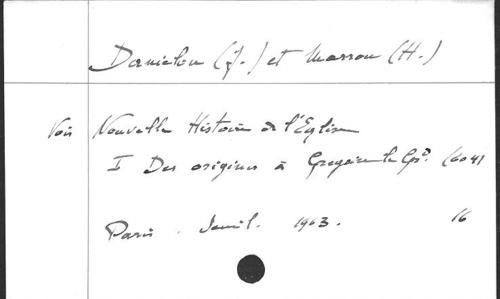 Danielou (J.) et Marrou (H.)
Voir Nouvelle Histoire de l'Eglise
I Des origines à Gregoire le Gd. (604)
Paris. Seuil. 1963. 16